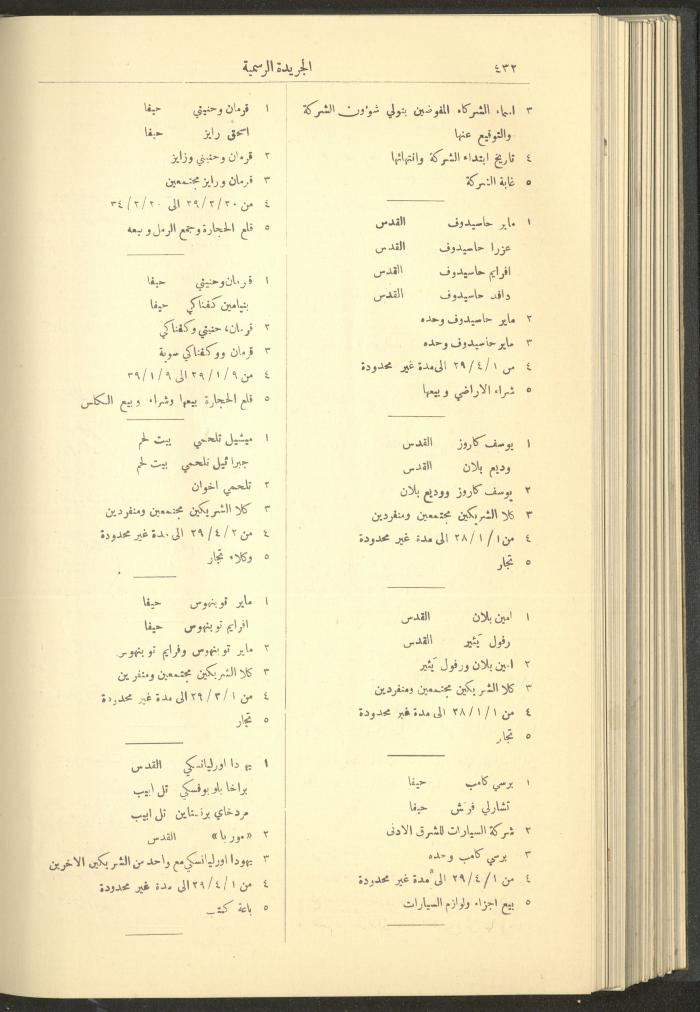 ٤٣٢
الجريدة الرسمية
٣ اسماء الشركاء المفوضين بتولي شوءون الشركة
والتوقيع عنها
٤ تاريخ ابتداء الشركة وانتهائها
٥ غاية الشركة
١ ماير حاسيدوف القدس
عزرا حاسيدوف القدس
افرايم حاسيدوف القدس
دافد حاسيدوف القدس
٢ ماير حاسيدوف وحده
٣ ماير حاسيدوف وحده
٤ من ٢٩/٤/١ الى مدة غير محدودة
٥ شراء الاراضي وبيعها
١ يوسف كاروز القدس
وديع بلان القدس
٢ يوسف كاروز ووديع بلان
٣ كلا الشريكين مجتمعين ومنفردين
٤ من ٢٨/١/١ الى مدة غير محدودة
٥ تجار
١ امين بلان القدس
رفول يَثير القدس
٢ امين بلان ورفول يَثير
٣ كلا الشريكين مجتمعين ومنفردين
٤ من ٢٨/١/١ الى مدة غير محدودة
٥ تجار
١ برسي كامب حيفا
تشارلي فرنش حيفا
٢ شركة السيارات للشرق الادنى
٣ برسي كامب وحده
٤ من ٢٩/٤/١ الى مدة غير محدودة
٥ بيع اجزاء ولوازم السيارات
١ قرمان وحنيتي حيفا
اسحق رايز حيفا
٢ قرمان وحنيتي وزايز
٣ قرمان ورايز مجتمعين
٤ من ٢٩/٢/٢٠ الى ٣٤/٢/٢٠
٥ قلع الحجارة وجمع الرمل وبيعه
١ قرمان وحنيتي حيفا
بنيامين كفناكي حيفا
٢ قرمان، حنيتي وكفناكي
٣ قرمان ووكفناكي سوية
٤ من ٢٩/١/٩ الى ٣٩/١/٩
٥ قلع الحجارة بيعها وشراء وبيع الكلس
١ ميشيل تلحمي بيت لحم
جبرائيل تلحمي بيت لحم
٢ تلحمي اخوان
٣ كلا الشريكين مجتمعين ومنفردين
٤ من ٢٩/٤/٢ الى مدة غير محدودة
٥ وكلاء تجار
١ ماير توبنهوس حيفا
افرايم توبنهوس حيفا
٢ ماير توبنهوس وفرايم توبنهوس
٣ كلا الشريكين مجتمعين ومنفردين
٤ من ٢٩/٣/١ الى مدة غير محدودة
٥ تجار
١ يهودا اورليانسكي القدس
براخا بلوبوفسكي تل ابيب
مردخاي برنستاين تل ابيب
٢ «موريا» القدس
٣ يهودا اورليانسكي مع واحد من الشريكين الاخرين
٤ من ٢٩/٤/١ الى مدة غير محدودة
٥ باعة كتب